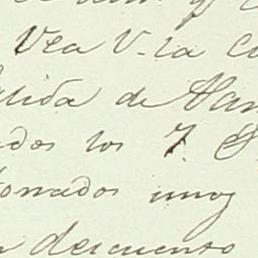 Vea V. la
lida de San
dos los 7. S
onados unos
descuento